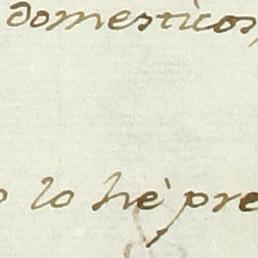 domesticos,
lo hè pre